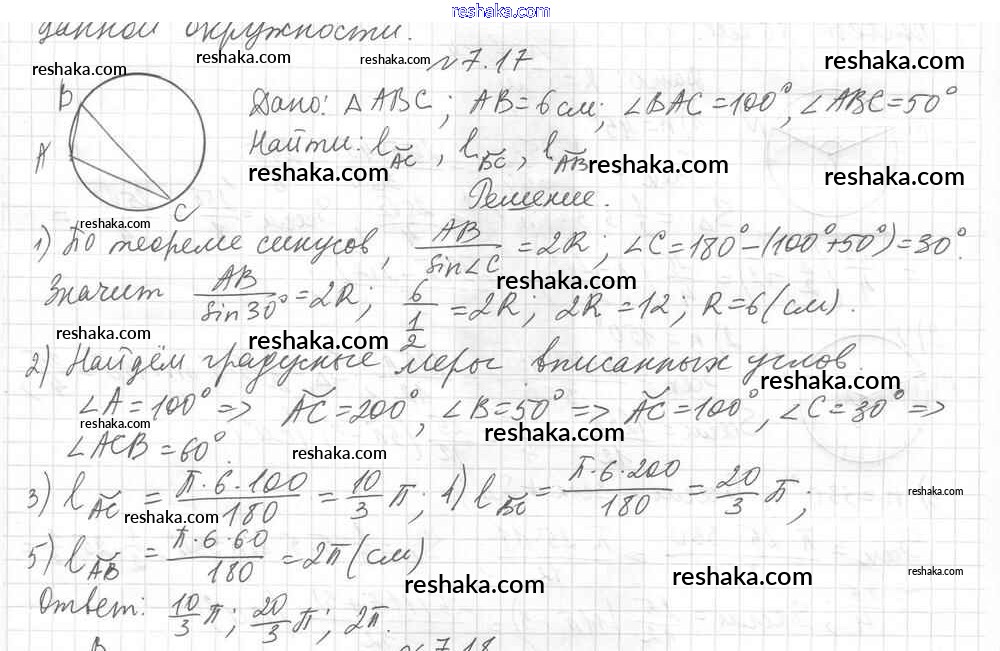 reshaka.com
данной окружности.
reshaka.com reshaka.com reshaka.com №7.17 reshaka.com
B Дано: △ABC; AB=6см; ∠BAC=100°, ∠ABC=50° reshaka.com
A Найти: l⌣AC, l⌣BC, l⌣AB reshaka.com reshaka.com
C Решение. reshaka.com
reshaka.com
1) По теореме синусов, AB/sin∠C = 2R; ∠C=180°-(100°+50°)=30°.
reshaka.com
Значит AB/sin30° = 2R; 6/(1/2) = 2R; 2R=12; R=6(см).
reshaka.com reshaka.com
2) Найдём градусные меры вписанных углов.
reshaka.com
∠A=100° => ⌣AC=200°, ∠B=50° => ⌣AC=100°, ∠C=30° =>
reshaka.com reshaka.com
∠ACB=60°.
reshaka.com
3) l⌣AC = π·6·100/180 = 10/3 π; 4) l⌣BC = π·6·200/180 = 20/3 π;
reshaka.com reshaka.com
5) l⌣AB = π·6·60/180 = 2π(см)
reshaka.com reshaka.com reshaka.com
Ответ: 10/3 π; 20/3 π; 2π.
B №7.18